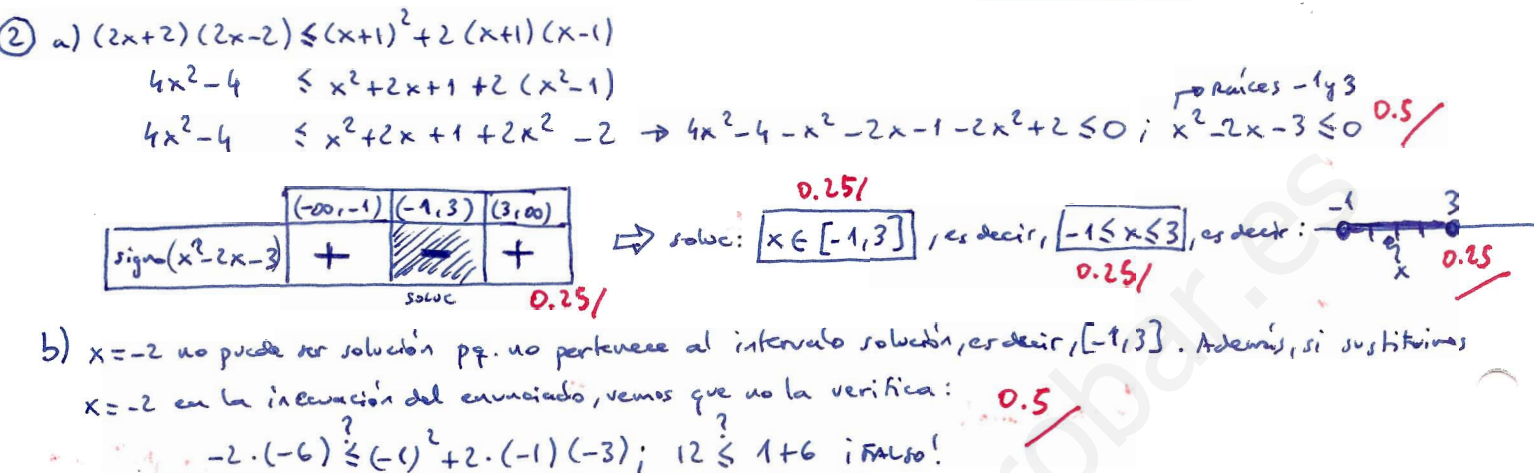 ② a) (2x+2)(2x-2) ≤ (x+1)² + 2(x+1)(x-1)
4x²-4 ≤ x²+2x+1+2(x²-1)
→ Raíces -1 y 3
4x²-4 ≤ x²+2x+1+2x²-2 → 4x²-4-x²-2x-1-2x²+2 ≤ 0 ; x²-2x-3 ≤ 0 0.5/
(-∞,-1) (-1,3) (3,∞)
signo(x²-2x-3) + - +
soluc 0.25/
⇨ soluc: x ∈ [-1,3] , es decir, -1 ≤ x ≤ 3 , es decir: -1 3
0.25/ 0.25/ x 0.25
b) x=-2 no puede ser solución pq. no pertenece al intervalo solución, es decir, [-1,3]. Además, si sustituimos
x=-2 en la inecuación del enunciado, vemos que no la verifica: 0.5
-2·(-6) ≤? (-1)²+2·(-1)(-3); 12 ≤? 1+6 ¡FALSO!
obar.es